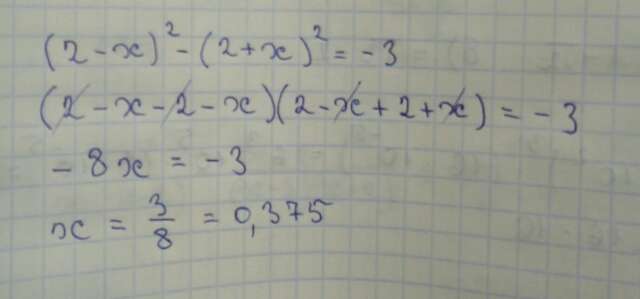 (2 - x)² - (2 + x)² = - 3
(2 - x - 2 - x)(2 - x + 2 + x) = - 3
- 8x = - 3
x = 3/8 = 0,375